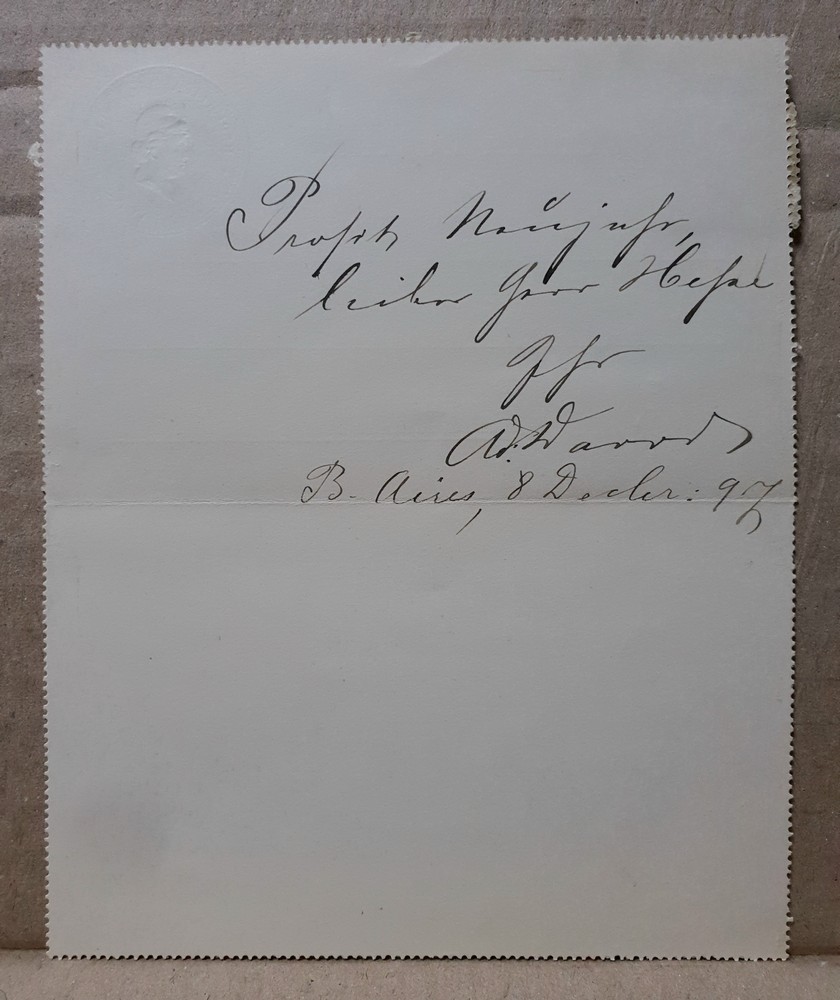 Prosit Neujahr,
lieber Herr Hesse
Ihr
Ad.
B. Aires, 8 Decbr: 97